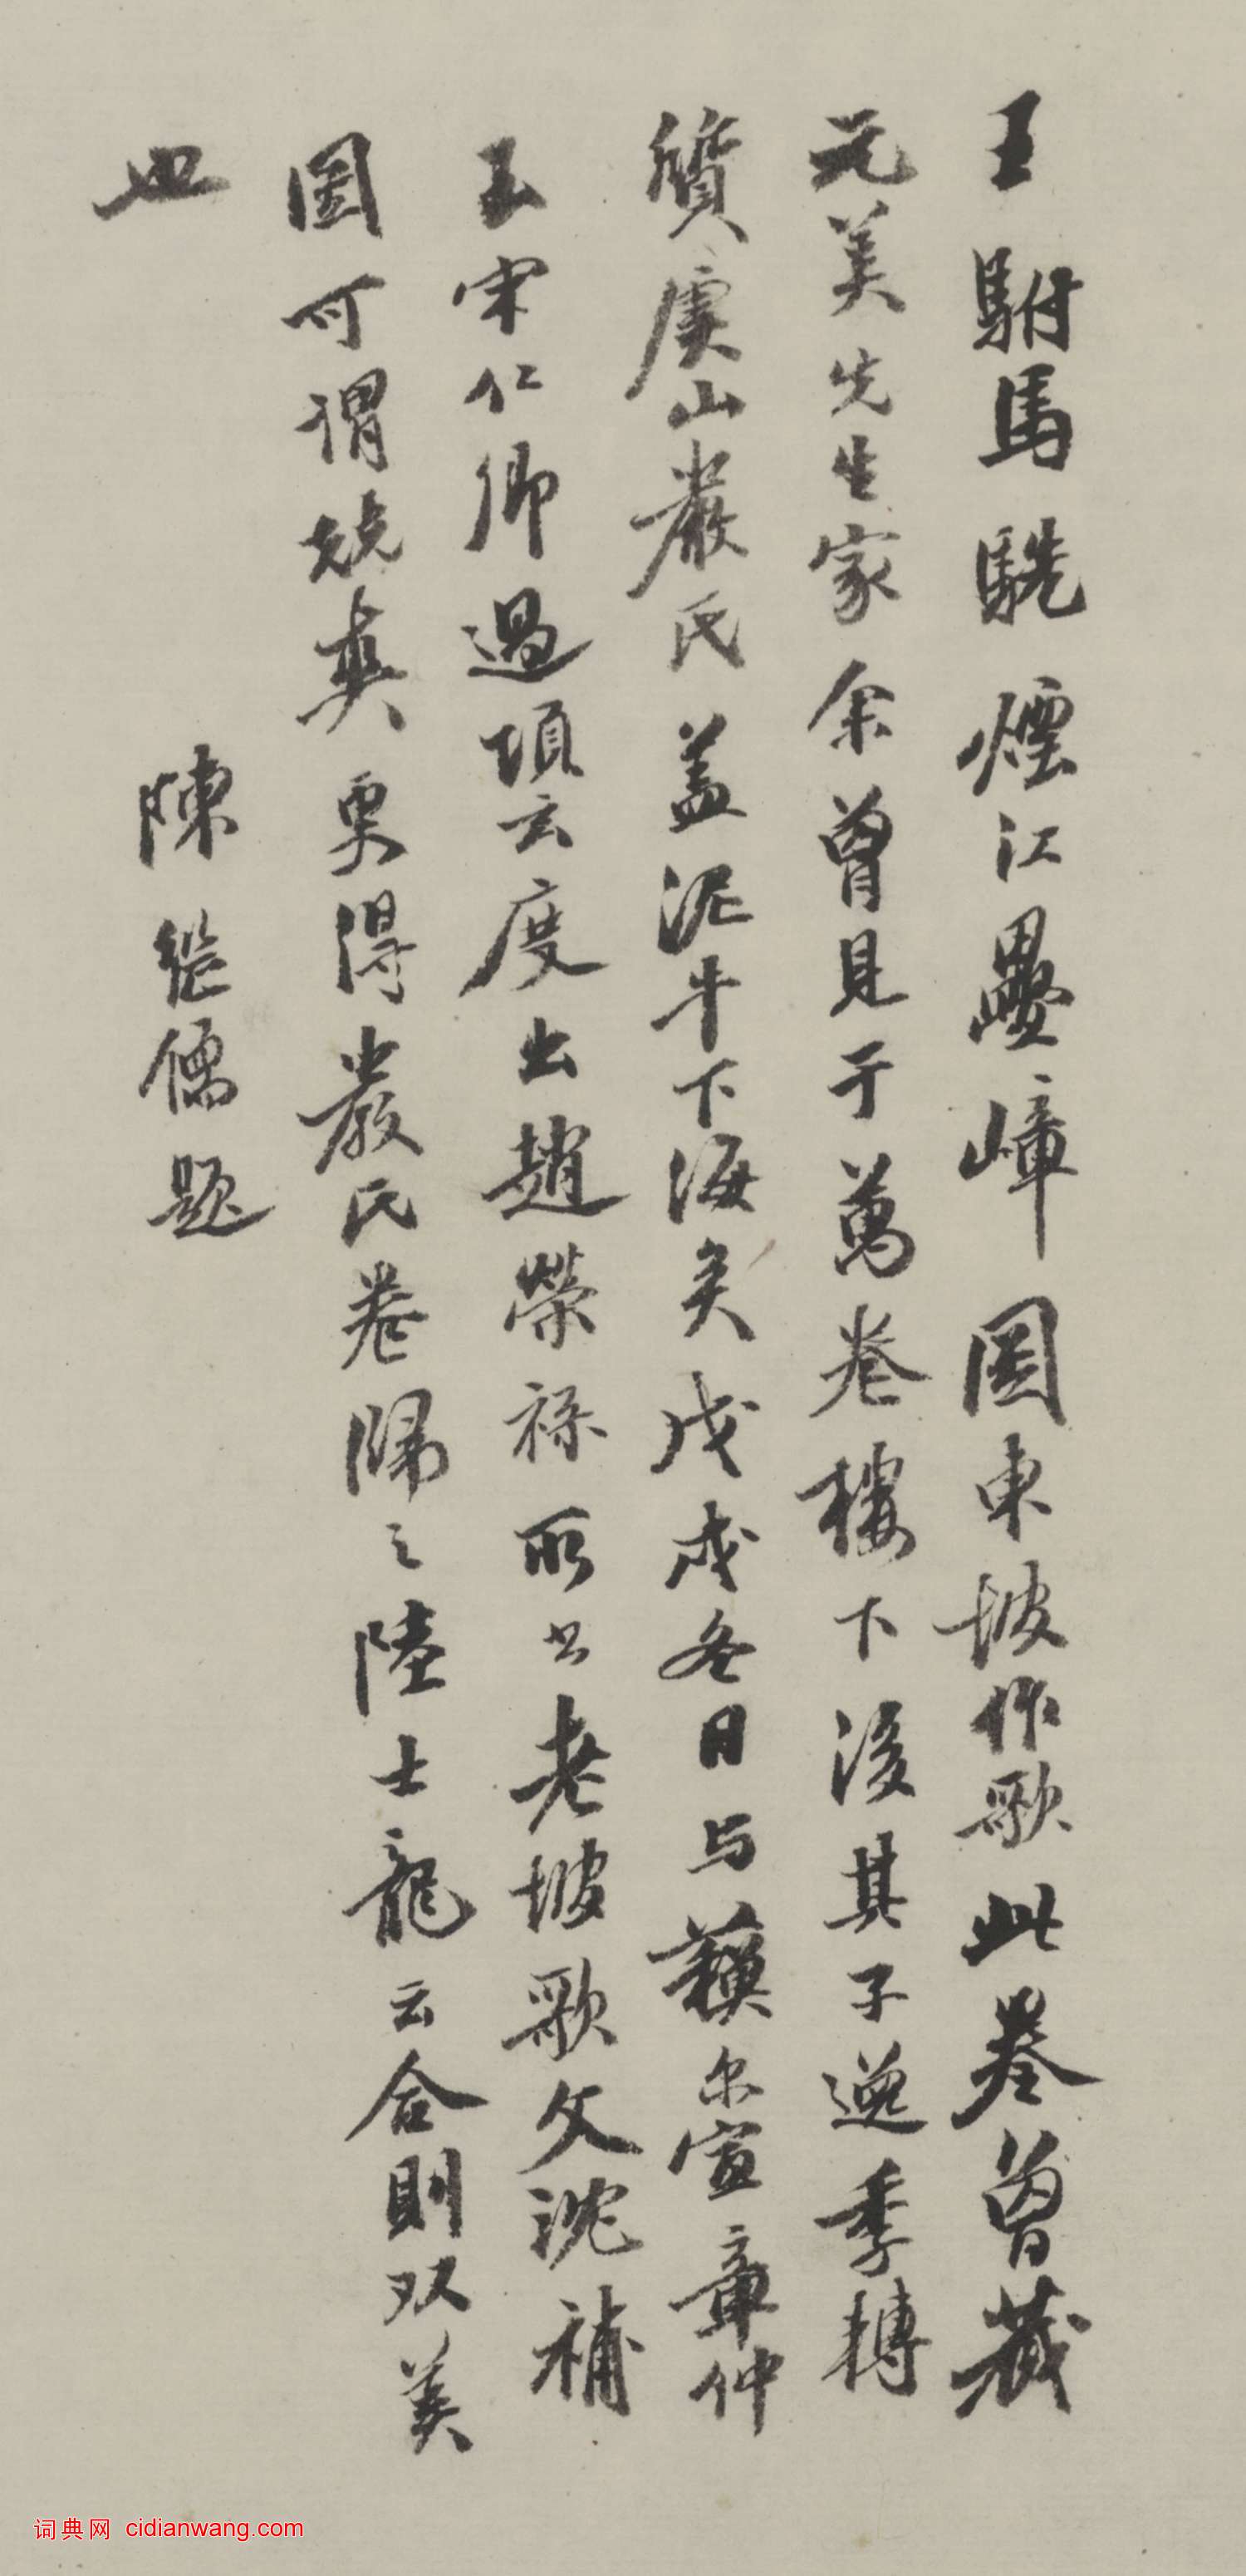 王駙馬駪煙江疊嶂圖東坡作歌此卷曾藏
元美先生家余曾見于萬卷樓下後其子逸季轉
質虞山嚴氏蓋泥牛下海矣戊戌冬日與蘓尔宣章仲
玉宋仁卿過項玄度出趙榮祿所書老坡歌文沈補
圖可謂兢爽更得嚴氏卷歸之陸士龍云合則双美
也
陳繼儒題
词典网 cidianwang.com